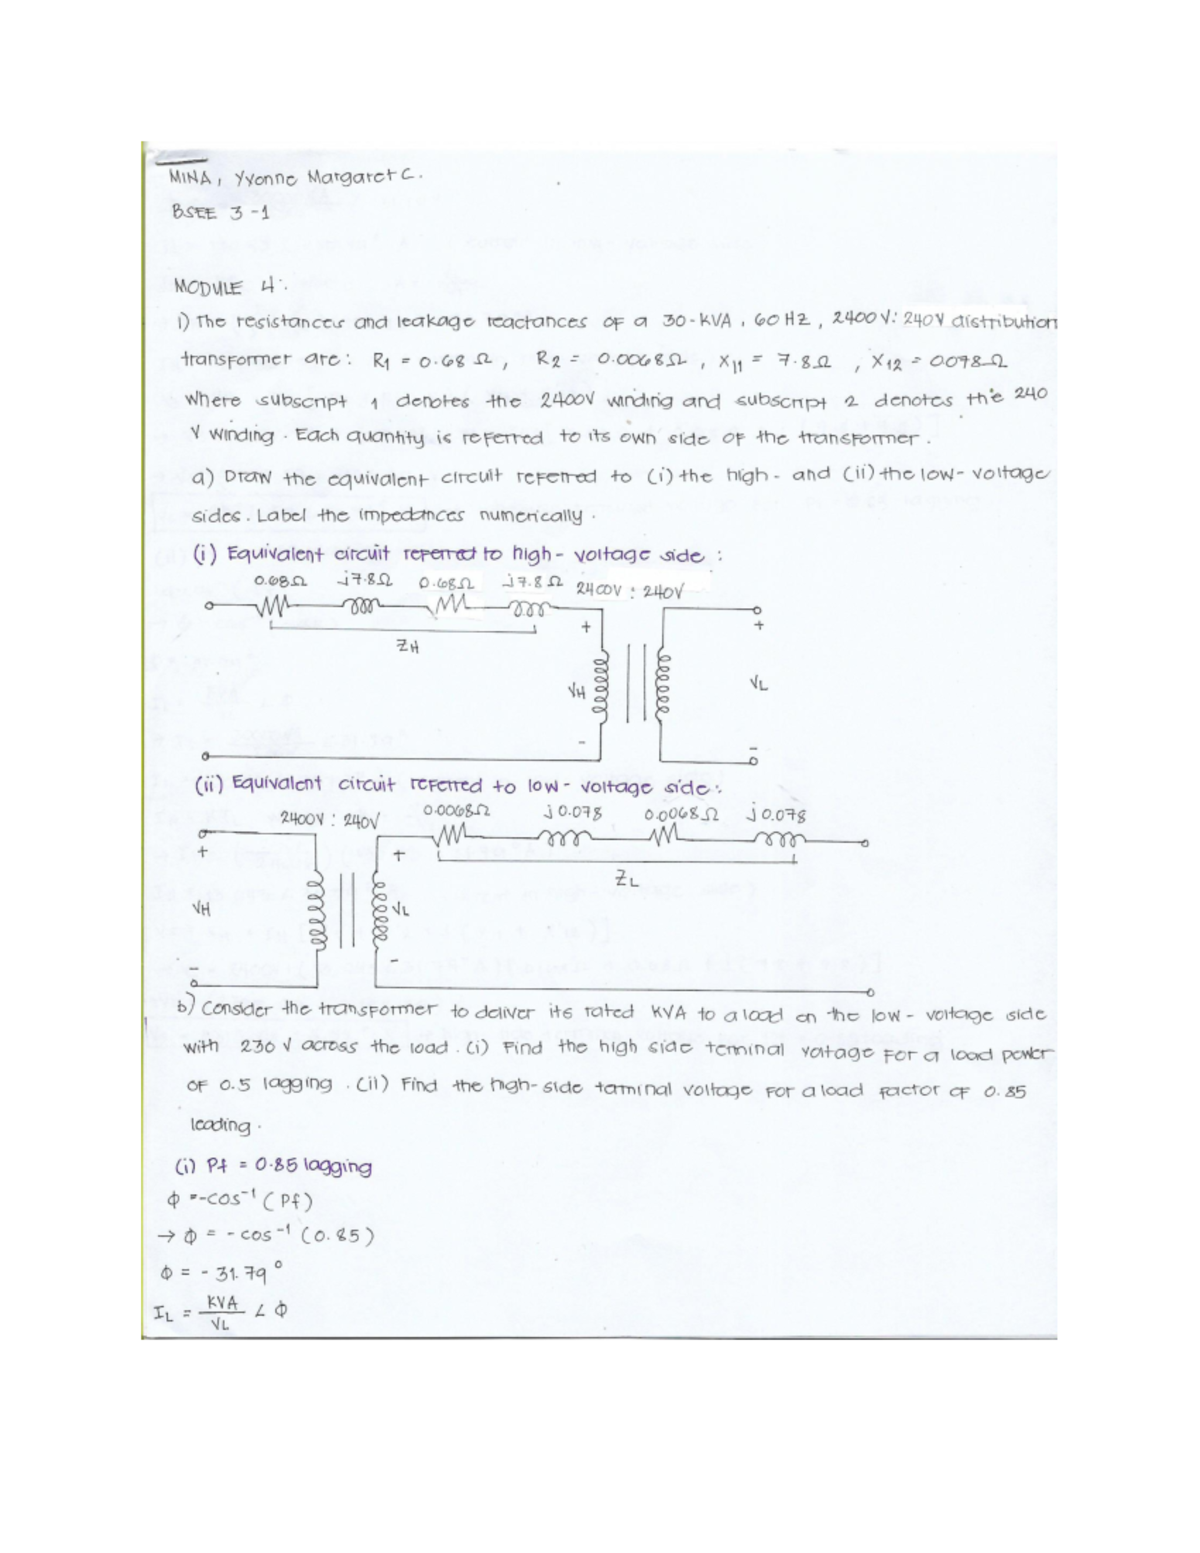 MINA, Yvonne Margaret C.
BSEE 3-1
MODULE 4:
1) The resistances and leakage reactances of a 30-KVA, 60 HZ, 2400V: 240V distribution
transformer are: R1 = 0.68 Ω, R2 = 0.0068Ω, X11 = 7.8Ω, X12 = 0078Ω
where subscript 1 denotes the 2400V winding and subscript 2 denotes the 240
V winding. Each quantity is referred to its own side of the transformer.
a) Draw the equivalent circuit referred to (i) the high- and (ii) the low-voltage
sides. Label the impedances numerically.
(i) Equivalent circuit referred to high-voltage side:
0.68Ω j7.8Ω 0.68Ω j7.8Ω 2400V : 240V
+ +
ZH
VH VL
- -
(ii) Equivalent circuit referred to low-voltage side:
2400V : 240V 0.0068Ω j0.078 0.0068Ω j0.078
+ +
ZL
VH VL
- -
b) Consider the transformer to deliver its rated KVA to a load on the low-voltage side
with 230 V across the load. (i) Find the high side terminal voltage for a load power
of 0.5 lagging. (ii) Find the high-side terminal voltage for a load factor of 0.85
leading.
(i) Pf = 0.85 lagging
φ = -cos⁻¹ (Pf)
→ φ = -cos⁻¹ (0.85)
φ = -31.79°
IL = KVA/VL ∠ φ